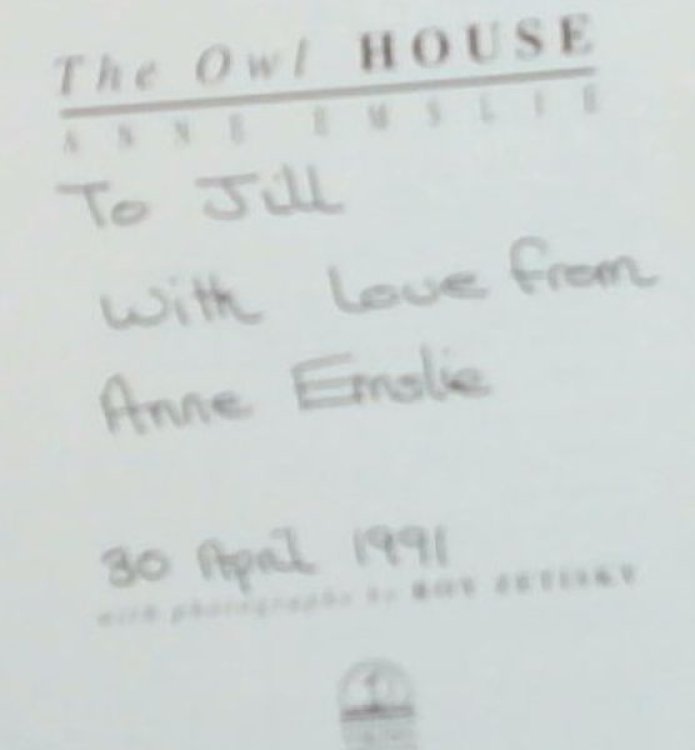 The Owl HOUSE
ANNE EMSLIE
To Jill
With Love from
Anne Emslie
30 April 1991
with photographs by